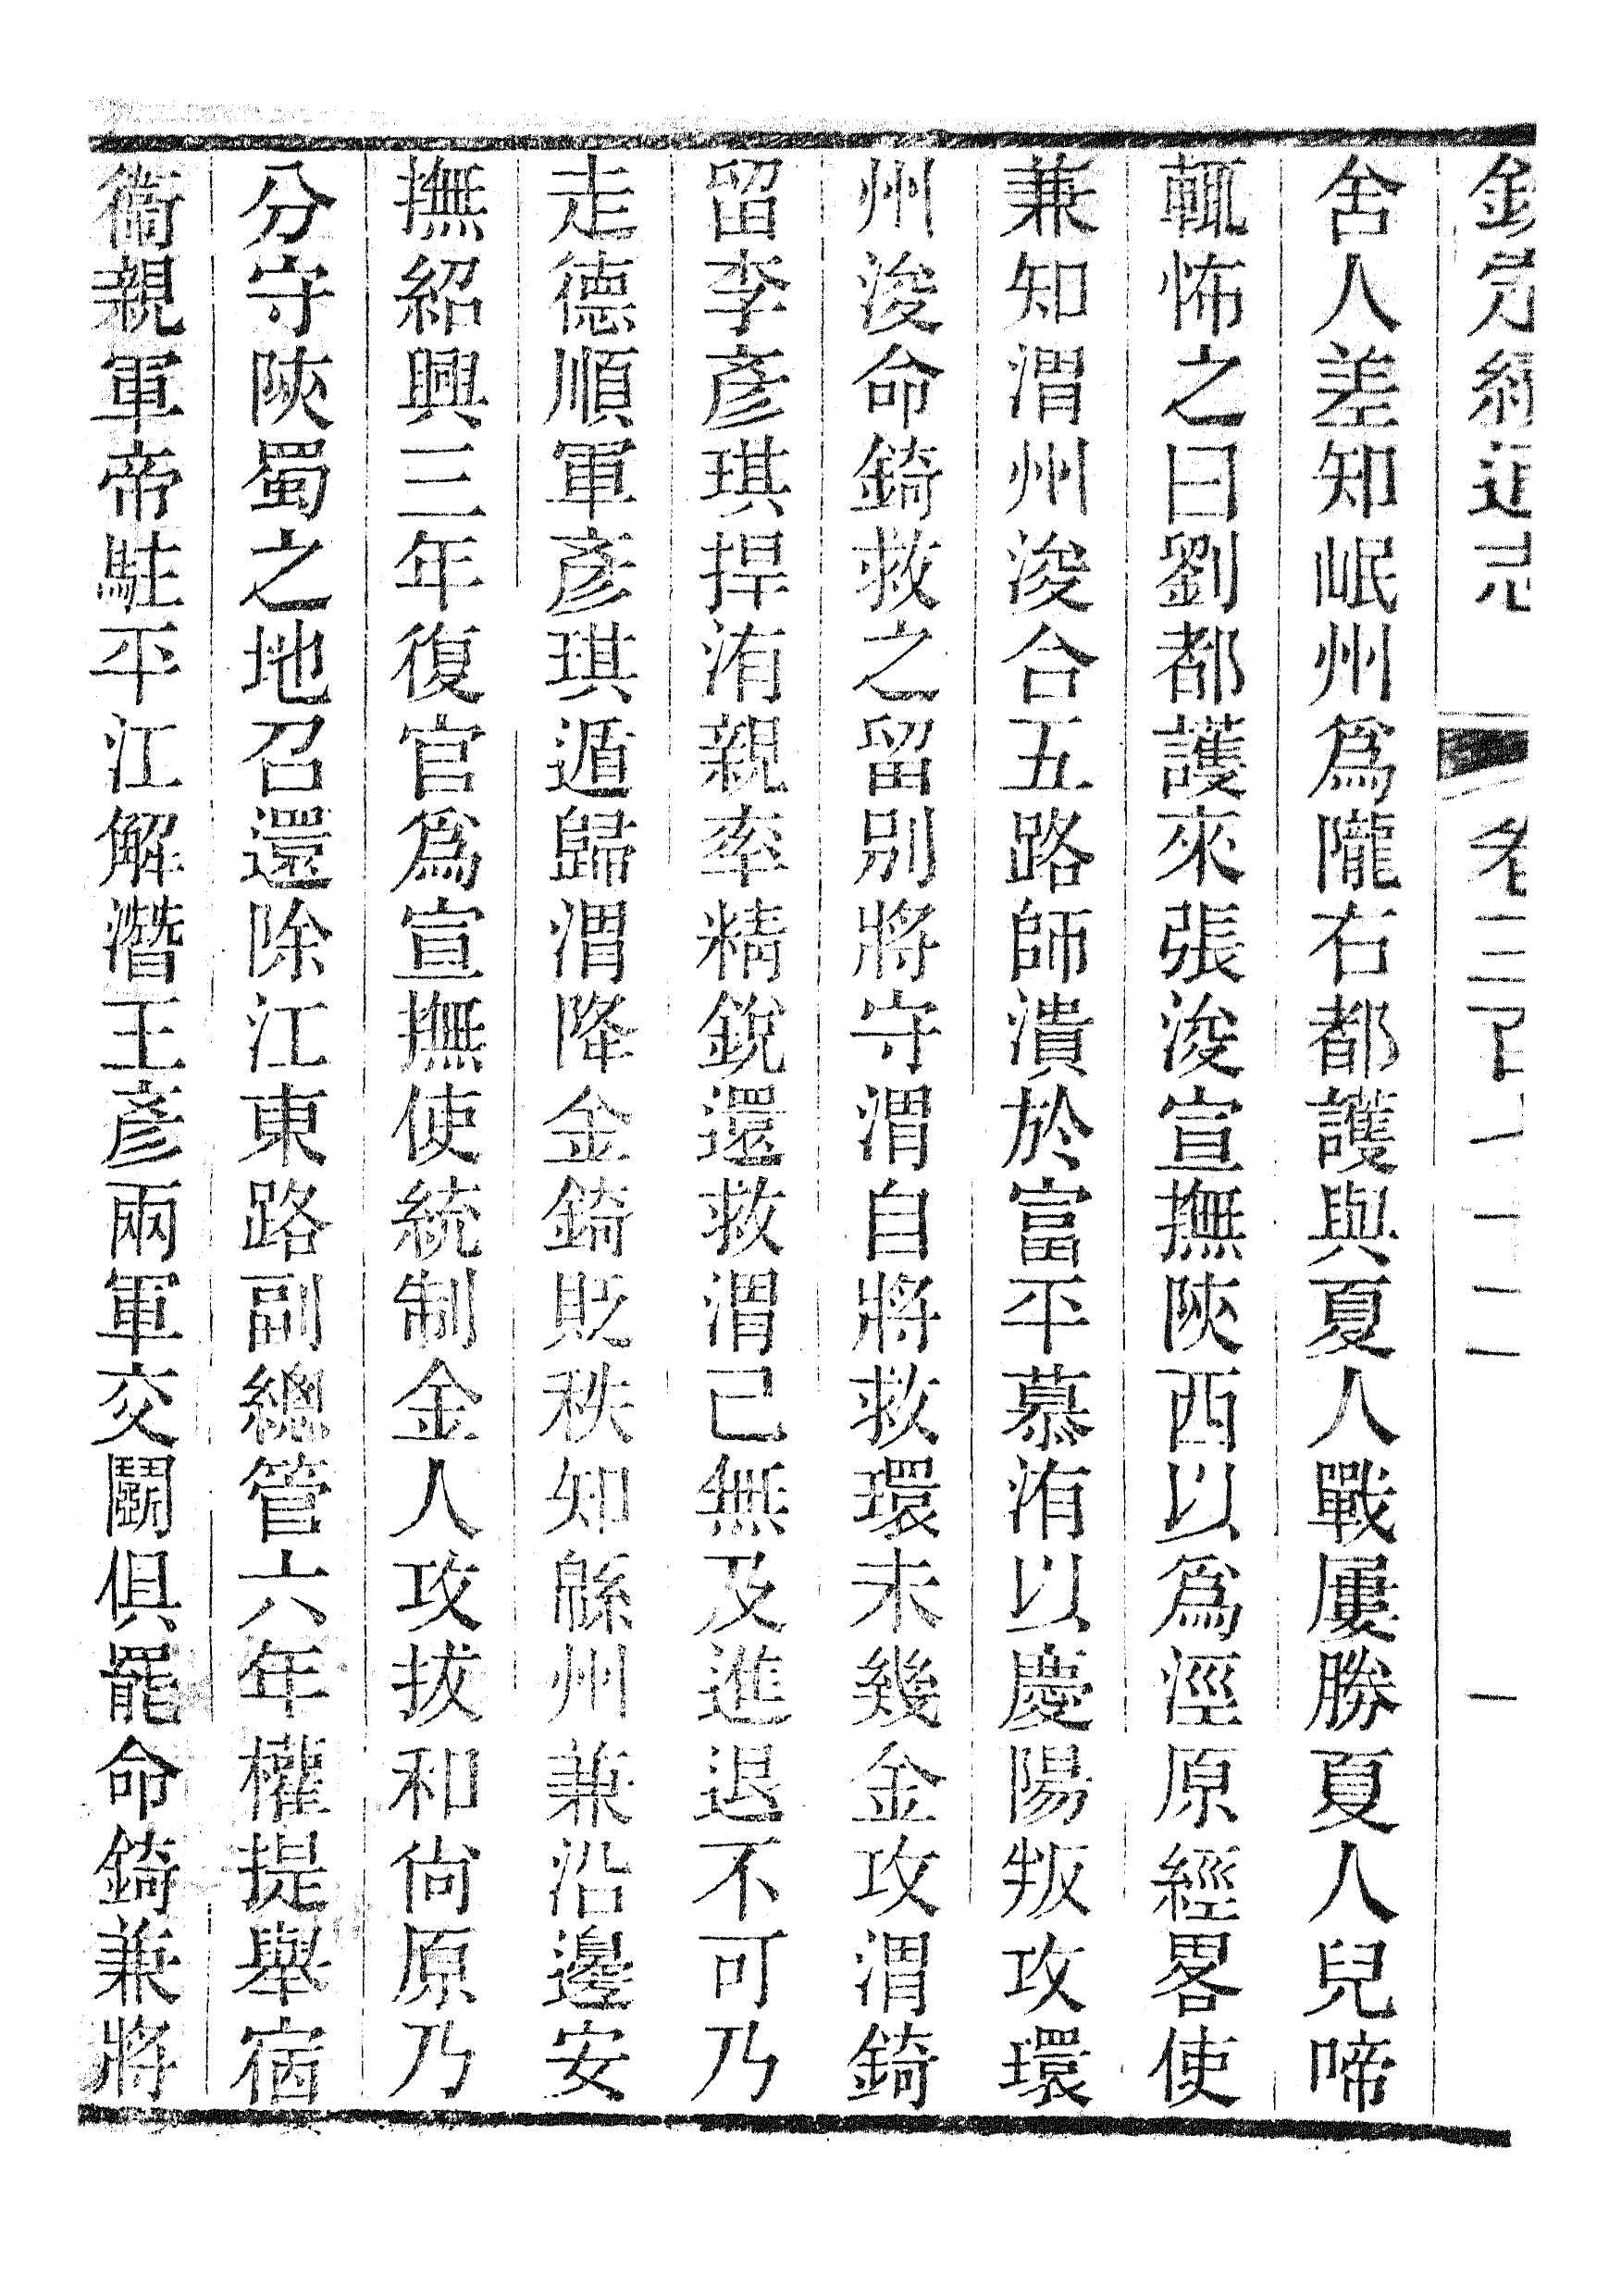 欽定續通志 卷三百
舍人差知岷州爲隴右都護與夏人戰屢勝夏人兒啼
輒怖之曰劉都護來張浚宣撫陝西以爲涇原經畧使
兼知渭州浚合五路師潰於富平慕洧以慶陽叛攻環
州浚命錡救之留別將守渭自將救環未幾金攻渭錡
留李彥琪捍洧親率精銳還救渭已無及進退不可乃
走德順軍彥琪遁歸渭降金錡貶秩知緜州兼沿邊安
撫紹興三年復官爲宣撫使統制金人攻拔和尙原乃
分守陝蜀之地召還除江東路副總管六年權提舉宿
衞親軍帝駐平江解濳王彥兩軍交鬭俱罷命錡兼將